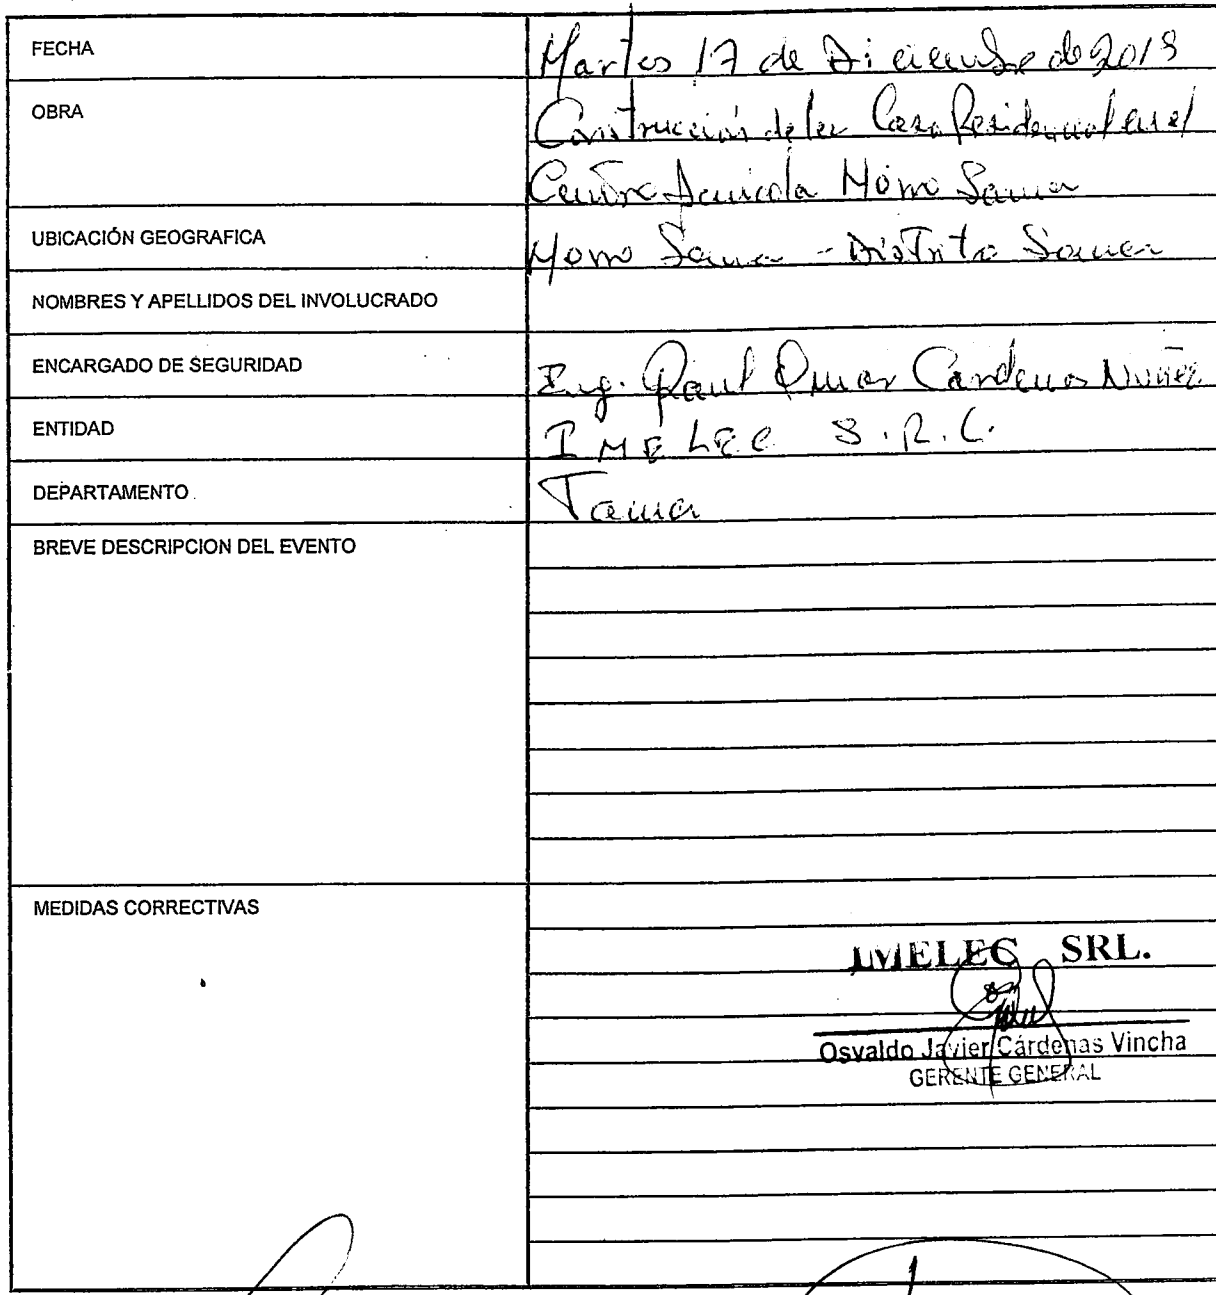 FECHA
Martes 17 de Diciembre de 2019
OBRA
Construcción de la Casa Residencial en el
Centro Acuicola Morro Sama
UBICACIÓN GEOGRAFICA
Morro Sama - Distrito Sama
NOMBRES Y APELLIDOS DEL INVOLUCRADO
ENCARGADO DE SEGURIDAD
Ing. Raul Omar Cardenas Nuñez
ENTIDAD
IMELEC S.R.L.
DEPARTAMENTO
Tacna
BREVE DESCRIPCION DEL EVENTO
MEDIDAS CORRECTIVAS
IMELEC SRL.
Osvaldo Javier Cárdenas Vincha
GERENTE GENERAL